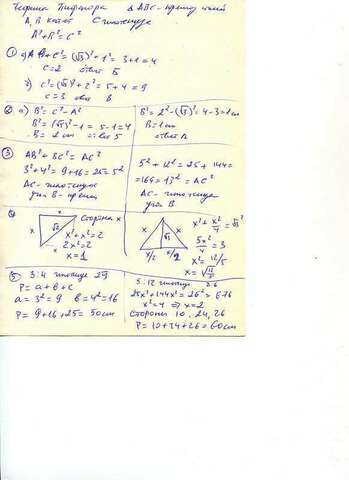 Теорема Пифагора △ABC-прямоу
A, B катет C гипотенуза
A²+B²=C²
1 a) A²+B²=C²=(√3)²+1²=3+1=4
C=2 ответ Б
б) C²=(√5)²+2²=5+4=9
C=3 ответ В
2 a) B²=C²-A²
B²=(√5)²-1=5-1=4
B=2 cm ответ Б
B²=2²-(√3)²=4-3=1cm
B=1cm
ответ А
3 AB²+BC²=AC²
3²+4²=9+16=25=5²
AC-гипотенуза
угол B-прямой
5²+12²=25+144=
=169=13²=AC²
AC-гипотенуза
угол B
4 x √2 x сторона x
x²+x²=2
2x²=2
x=1
x √3 x
x/2 x/2
x²+x²/4=√3²
5x²/4=3
x²=12/5
x=√12/5
5 3:4 гипотенуза 25
P=a+b+c
a=3²=9 b=4²=16
P=9+16+25=50cm
5:12 гипотенуза 26
25x²+144x²=26²=676
x²=4 ⇒ x=2
Стороны 10, 24, 26
P=10+24+26=60cm